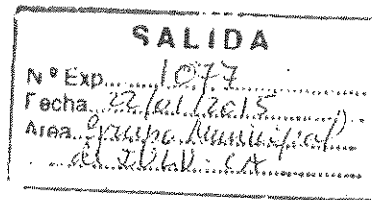 SALIDA
Nº Exp. 1077
Fecha 22/01/2015
Area Grupo Municipal
de IULV-CA